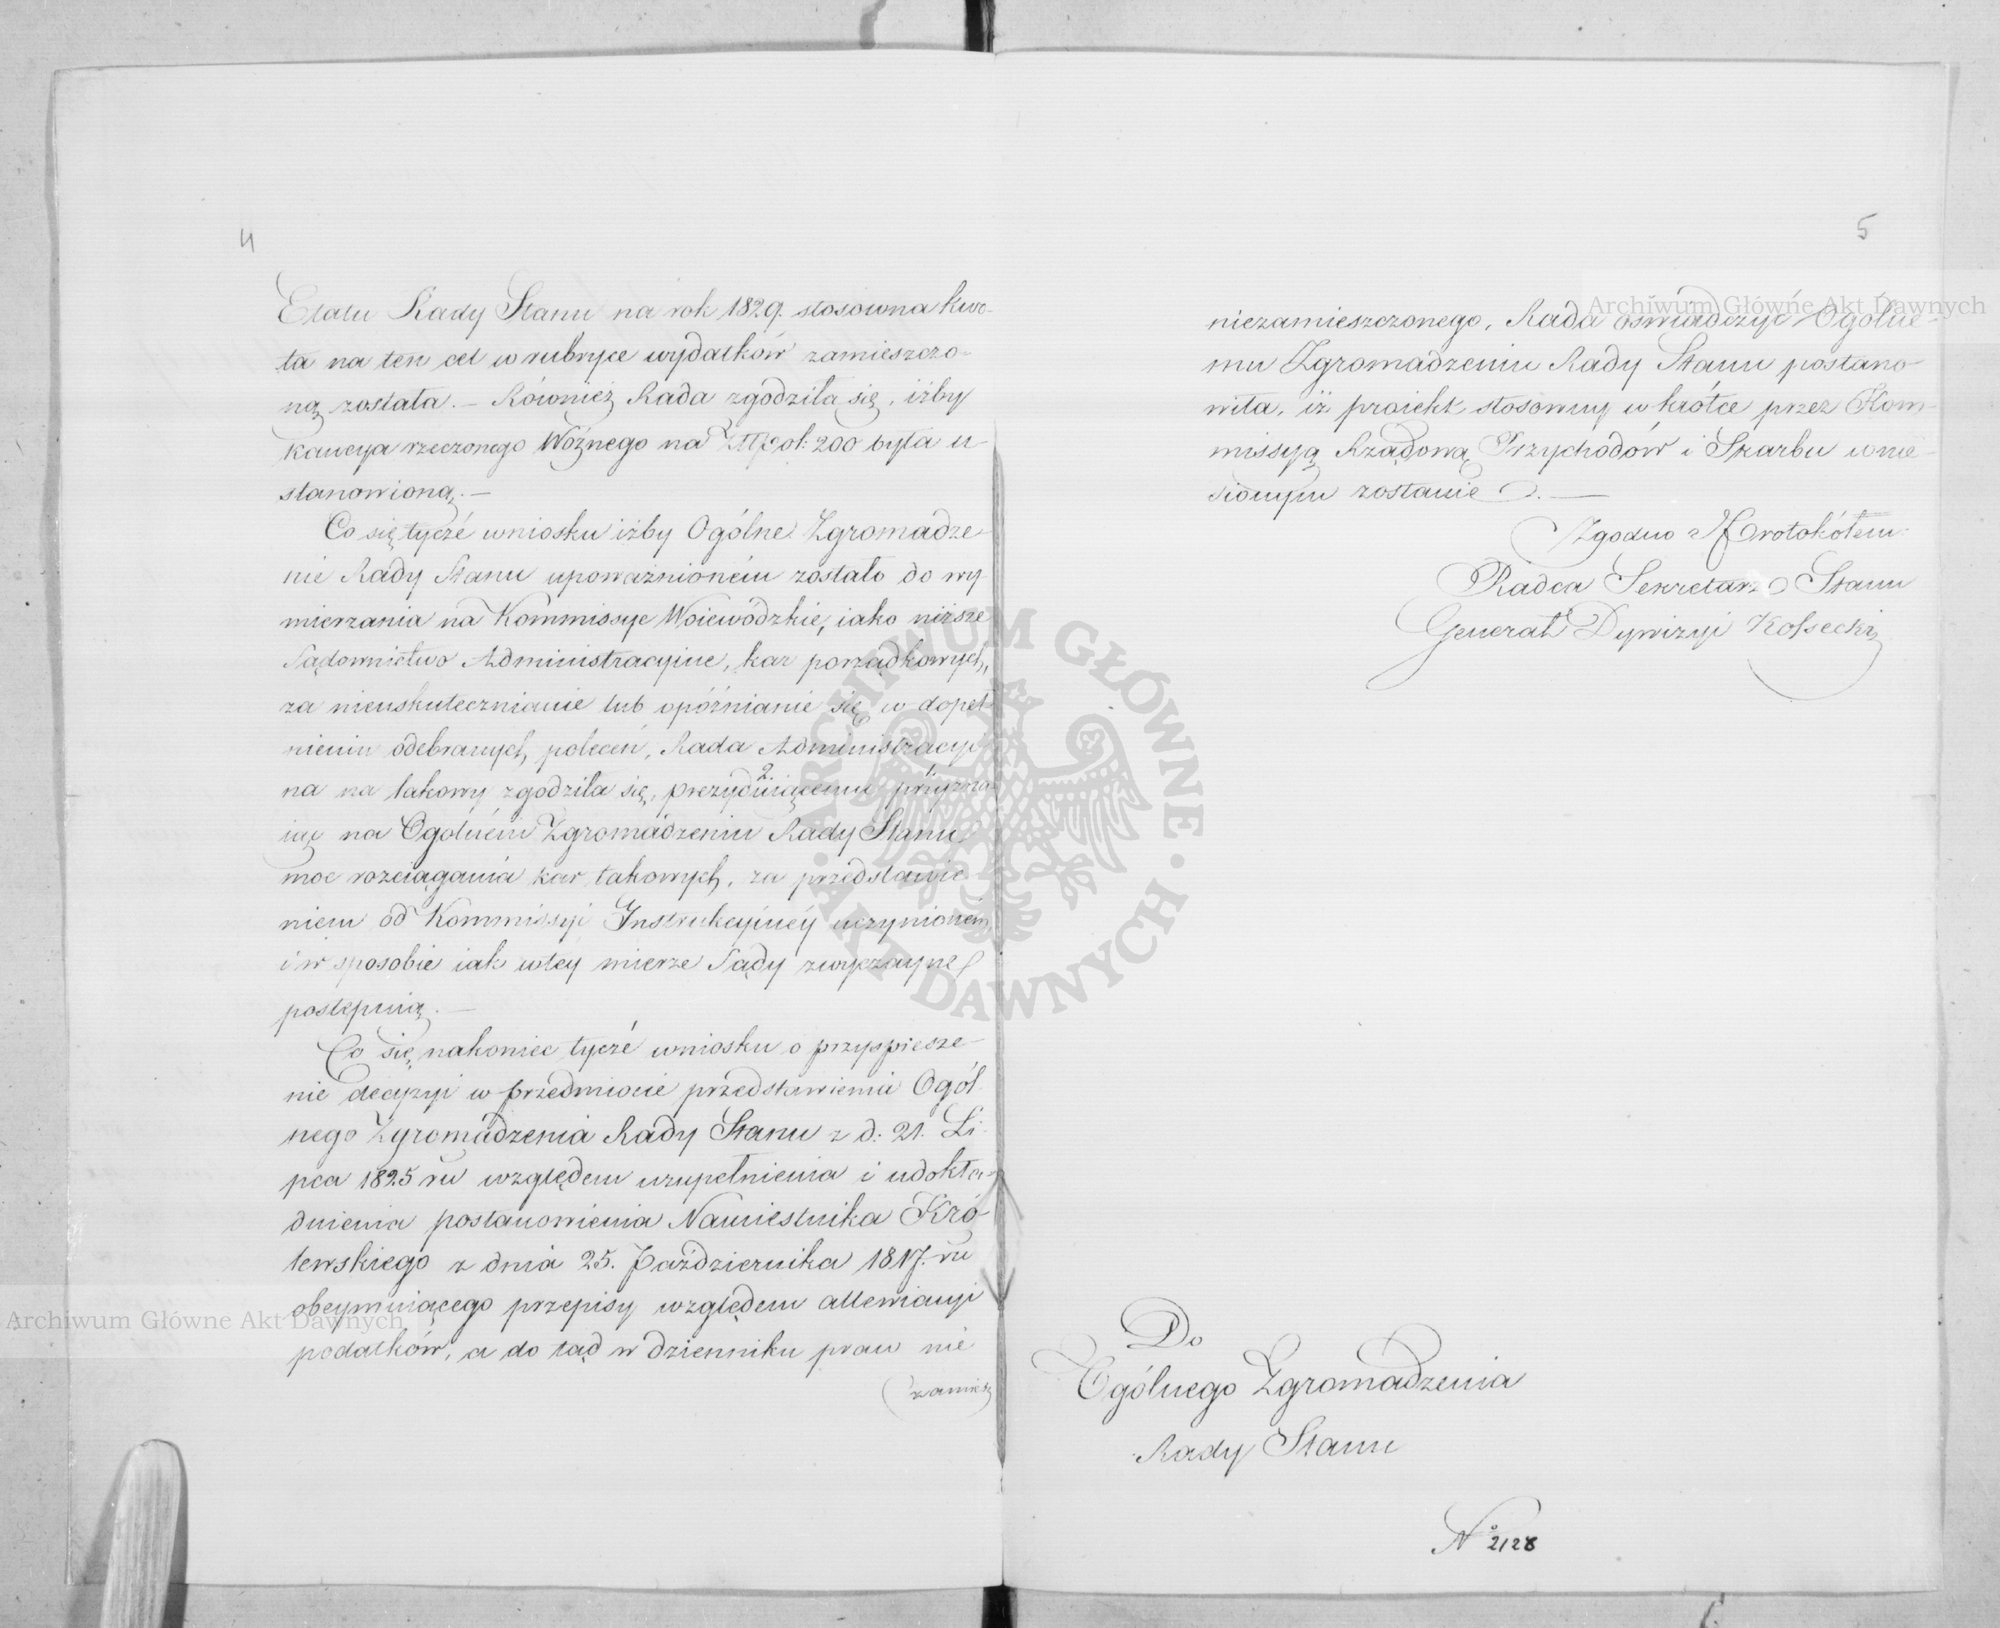 4
Etatu Rady Stanu na rok 1829. stosowna kwo-
ta na ten cel w rubryce wydatków zamieszczo-
ną została. — Również Rada zgodziła się, iżby
kaucya rzeczonego Woźnego na Złtpol: 200 była u-
stanowioną. —
Co się tycze wniosku iżby Ogólne Zgromadze-
nie Rady Stanu upoważnioném zostało do wy-
mierzania na Kommissye Woiewódzkie, iako niższe
Sądownictwo Administracyine, kar porządkowych,
za nieuskutecznianie lub opóźnianie się w dopeł-
nieniu odebranych poleceń, Rada Administracyi-
na na takowy zgodziła się, prezyduiącemu przyzna-
iąc na Ogólném Zgromadzeniu Rady Stanu
moc rozciągania kar takowych, za przedstawie-
niem od Kommissyi Instrukcyiney uczynioném,
i w sposobie iak w tey mierze Sądy zwyczayne
postępuią. —
Co się nakoniec tycze wniosku o przyspiesze-
nie decyzyi w przedmiocie przedstawienia Ogól-
nego Zgromadzenia Rady Stanu z d: 21. Li-
pca 1825 ru względem uzupełnienia i udokła-
dnienia postanowienia Namiestnika Kró-
lewskiego z dnia 25. Października 1817. ru
obeymuiącego przepisy względem allewiacyi
podatków, a do tąd w dzienniku praw nie
(zamiesz
5
niezamieszczonego, Rada oświadczyć Ogólne-
mu Zgromadzeniu Rady Stanu postano-
wiła, iż proiekt stosowny wkrótce przez Kom-
missyą Rządową Przychodów i Skarbu wnie-
sionym zostanie. —
Zgodno z Protokółem
Radca Sekretarz Stanu
Generał Dywizyi Kossecki
Do
Ogólnego Zgromadzenia
Rady Stanu
No 2128
Archiwum Główne Akt Dawnych
Archiwum Główne Akt Dawnych
ARCHIWUM GŁÓWNE AKT DAWNYCH